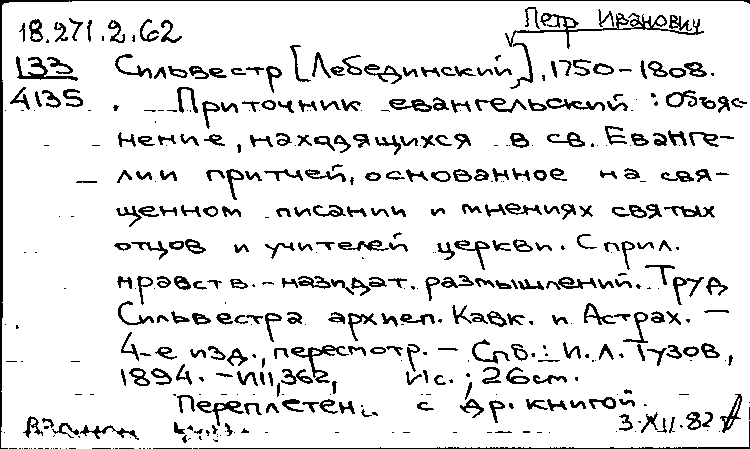 18.271.2.62
Петр Иванович
133 Сильвестр [Лебединский], 1750-1808.
4135 . Приточник евангельский : Объяс-
нение, находящихся в св. Еванге-
лии притчей, основанное на свя-
щенном писании и мнениях святых
отцов и учителей церкви. С прил.
нравств.-назидат. размышлений. Труд
Сильвестра архиеп. Кавк. и Астрах. -
4-е изд., пересмотр. - Спб.: И.Л. Тузов,
1894. - 362, с.; 26см.
Переплетен с др. книгой.
3.XII.82